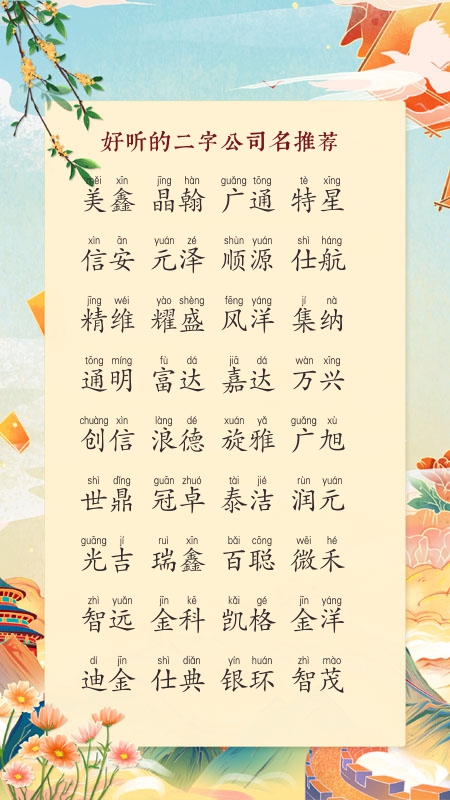 好听的二字公司名推荐
měi xīn jīng hàn guǎng tōng tè xīng
美鑫 晶翰 广通 特星
xìn ān yuán zé shùn yuán shì háng
信安 元泽 顺源 仕航
jīng wéi yào shèng fēng yáng jí nà
精维 耀盛 风洋 集纳
tōng míng fù dá jiā dá wàn xīng
通明 富达 嘉达 万兴
chuàng xìn làng dé xuán yǎ guǎng xù
创信 浪德 旋雅 广旭
shì dǐng guān zhuó tài jié rùn yuán
世鼎 冠卓 泰洁 润元
guāng jí ruì xīn bǎi cōng wēi hé
光吉 瑞鑫 百聪 微禾
zhì yuǎn jīn kē kǎi gé jīn yáng
智远 金科 凯格 金洋
dí jīn shì diǎn yín huán zhì mào
迪金 仕典 银环 智茂